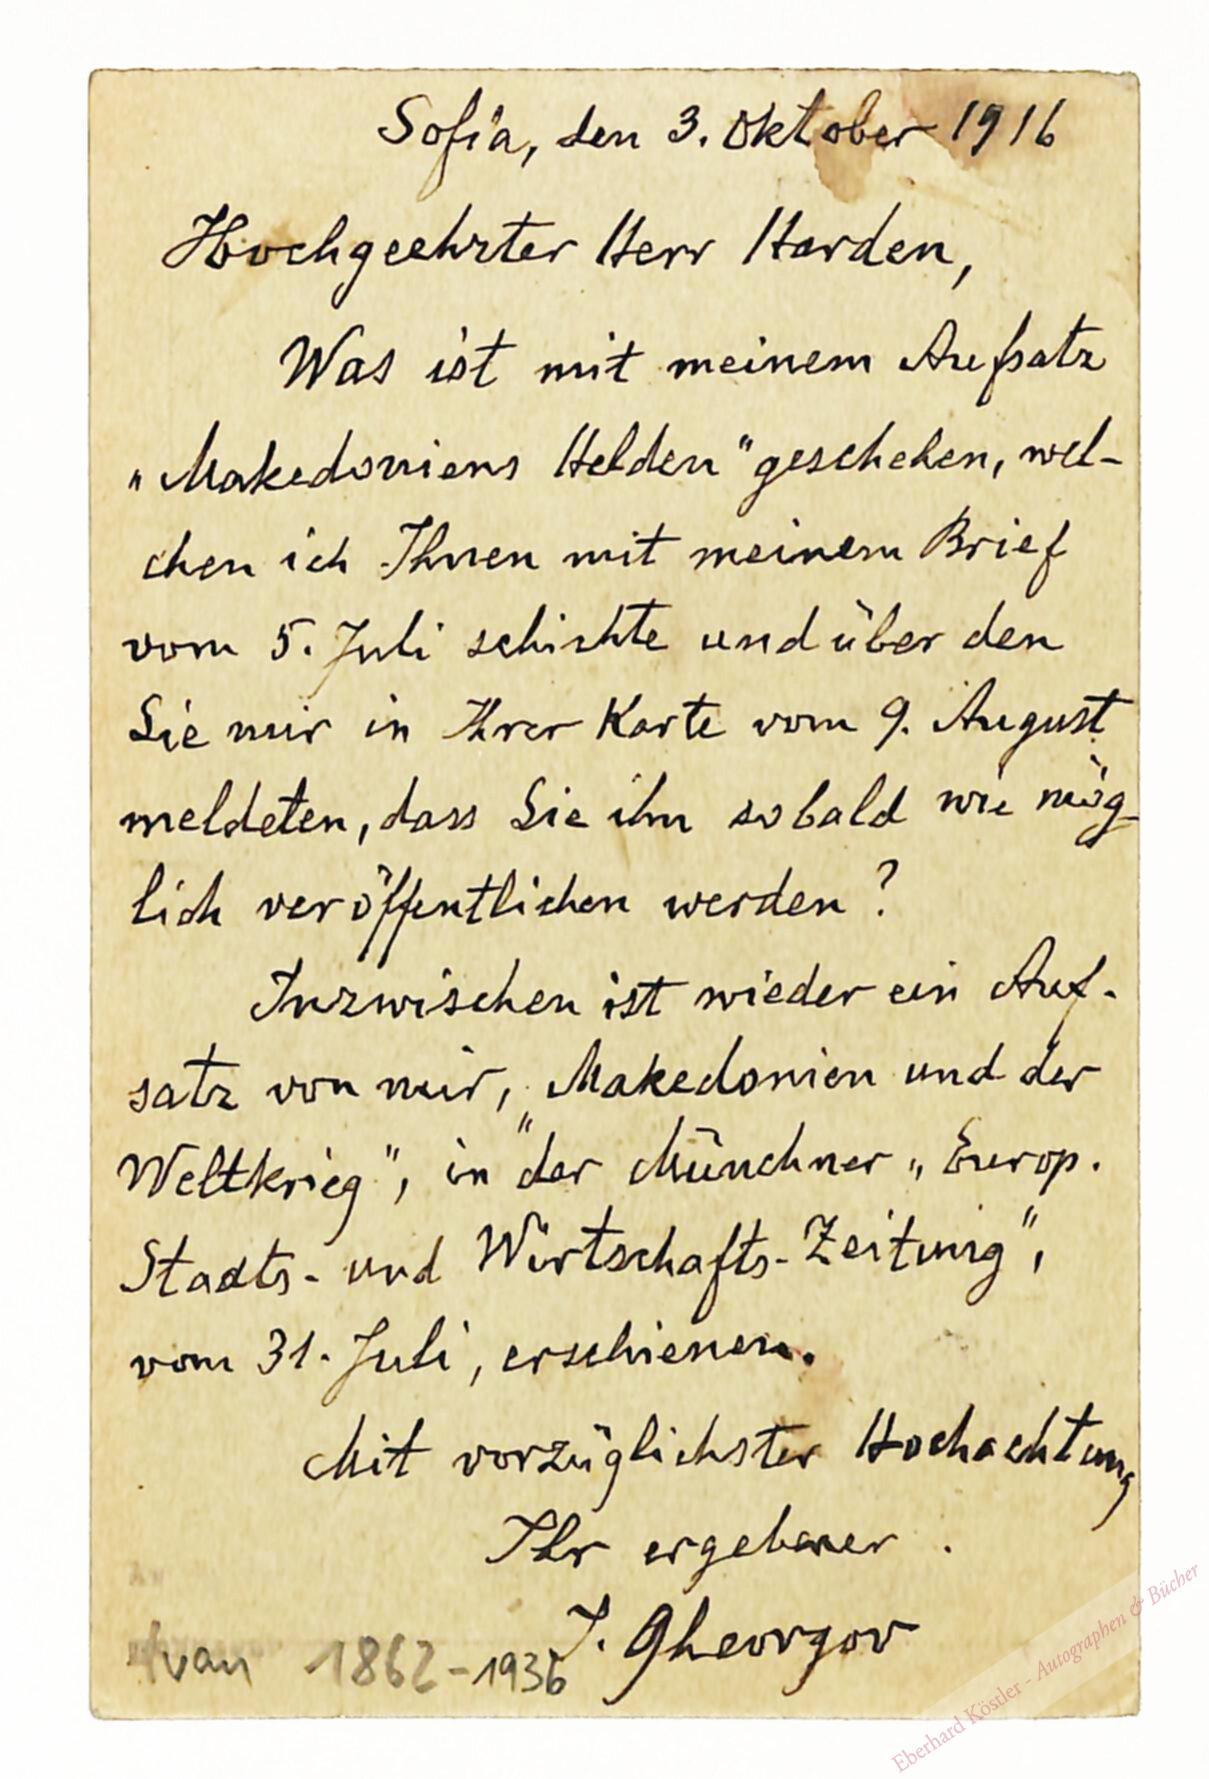 Sofia, den 3. Oktober 1916
Hochgeehrter Herr Harden,
Was ist mit meinem Aufsatz
„Makedoniens Helden" geschehen, wel-
chen ich Ihnen mit meinem Brief
vom 5. Juli schickte und über den
Sie mir in Ihrer Karte vom 9. August
meldeten, dass Sie ihn sobald wie mög-
lich veröffentlichen werden?
Inzwischen ist wieder ein Auf-
satz von mir, „Makedonien und der
Weltkrieg", in der Münchner „Europ.
Staats- und Wirtschafts-Zeitung",
vom 31. Juli, erschienen.
Mit vorzüglichster Hochachtung
Ihr ergebener
I. Gheorgov
Ivan 1862-1936
Eberhard Köstler - Autographen & Bücher